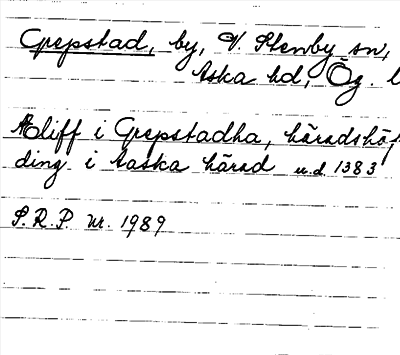 Grepstad, by, V. Stenby sn,
Aska hd, Ög. l
Æliff i Grepstadha, häradshöf-
ding i Aaska härad u.d. 1383
S.R.P. nr. 1989